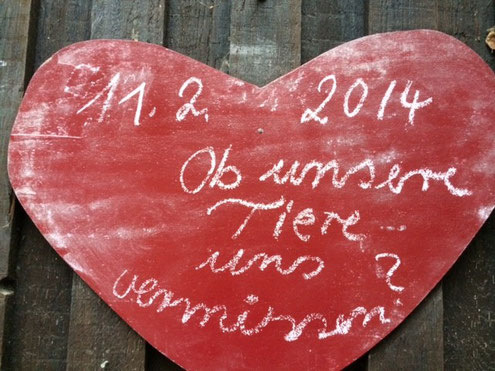 11. 2. 2014
Ob unsere
Tiere
uns
vermissen?